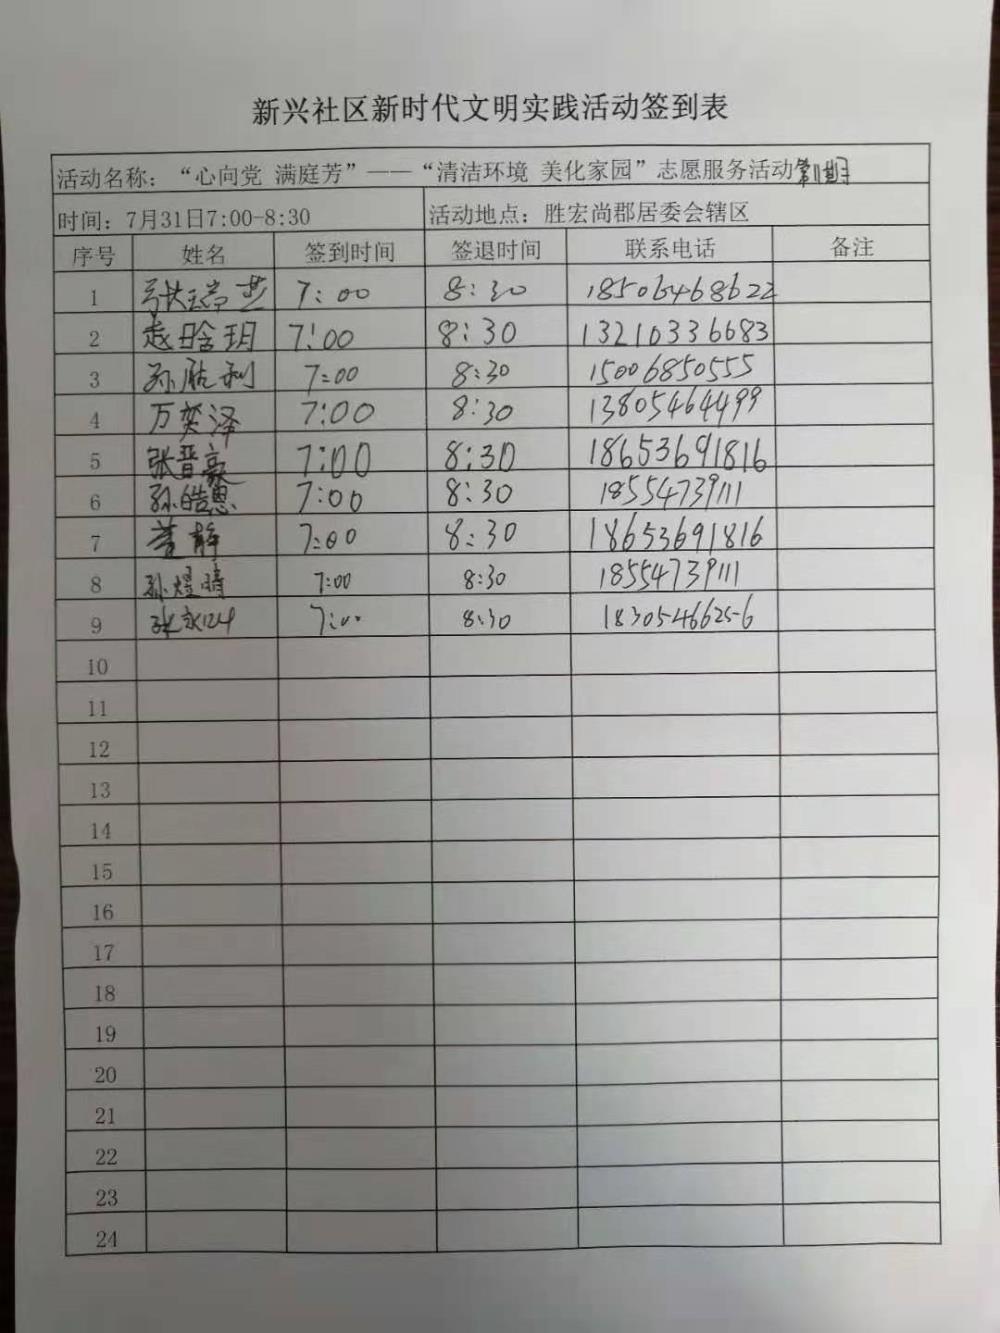 新兴社区新时代文明实践活动签到表
活动名称：“心向党 满庭芳”——“清洁环境 美化家园”志愿服务活动
时间：7月31日7:00-8:30 活动地点：胜宏尚郡居委会辖区
序号 姓名 签到时间 签退时间 联系电话 备注
1 张瑞芝 7:00 8:30 18506468622
2 赵晗玥 7:00 8:30 13210336683
3 孙胜利 7:00 8:30 15006850555
4 万奕泽 7:00 8:30 13805464499
5 张晋豪 7:00 8:30 18653691816
6 孙皓恩 7:00 8:30 18554739111
7 董静 7:00 8:30 18653691816
8 孙煜晴 7:00 8:30 18554739111
9 7:00 8:30 18305466256
10
11
12
13
14
15
16
17
18
19
20
21
22
23
24